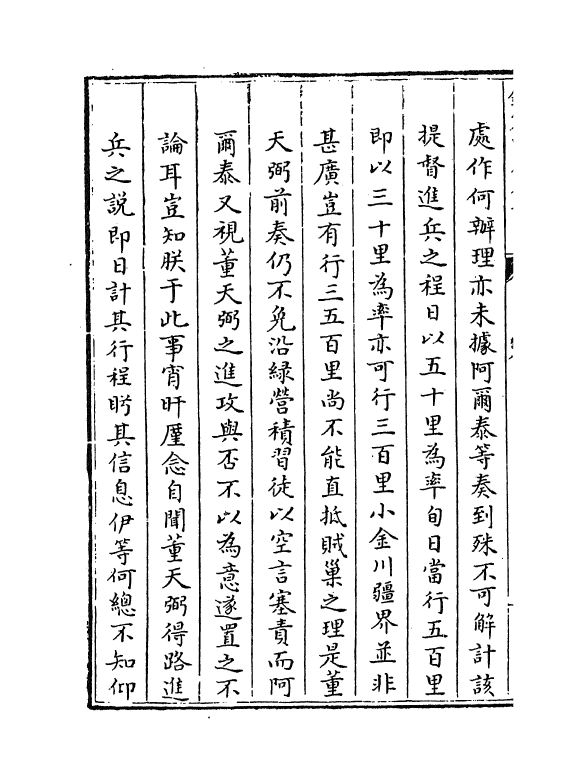 處作何辦理亦未據阿爾泰等奏到殊不可解計該
提督進兵之程日以五十里為率旬日當行五百里
即以三十里為率亦可行三百里小金川疆界並非
甚廣豈有行三五百里尚不能直抵賊巢之理是董
天弼前奏仍不免沿綠營積習徒以空言塞責而阿
爾泰又視董天弼之進攻與否不以為意遂置之不
論耳豈知朕于此事宵旰廑念自聞董天弼得路進
兵之說即日計其行程盻其信息伊等何總不知仰